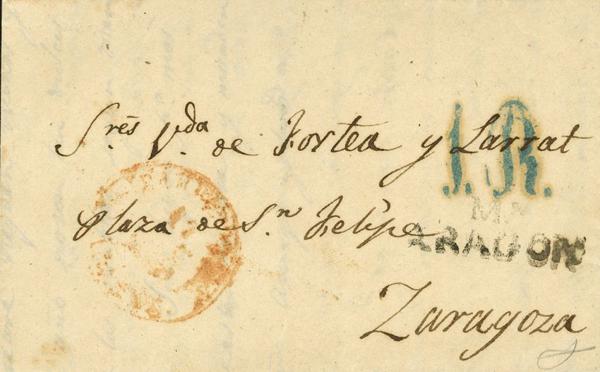 Sres Vda de Fortea y Larrat
1. R.
Plaza de Sn Felipe
ARAGON
Zaragoza